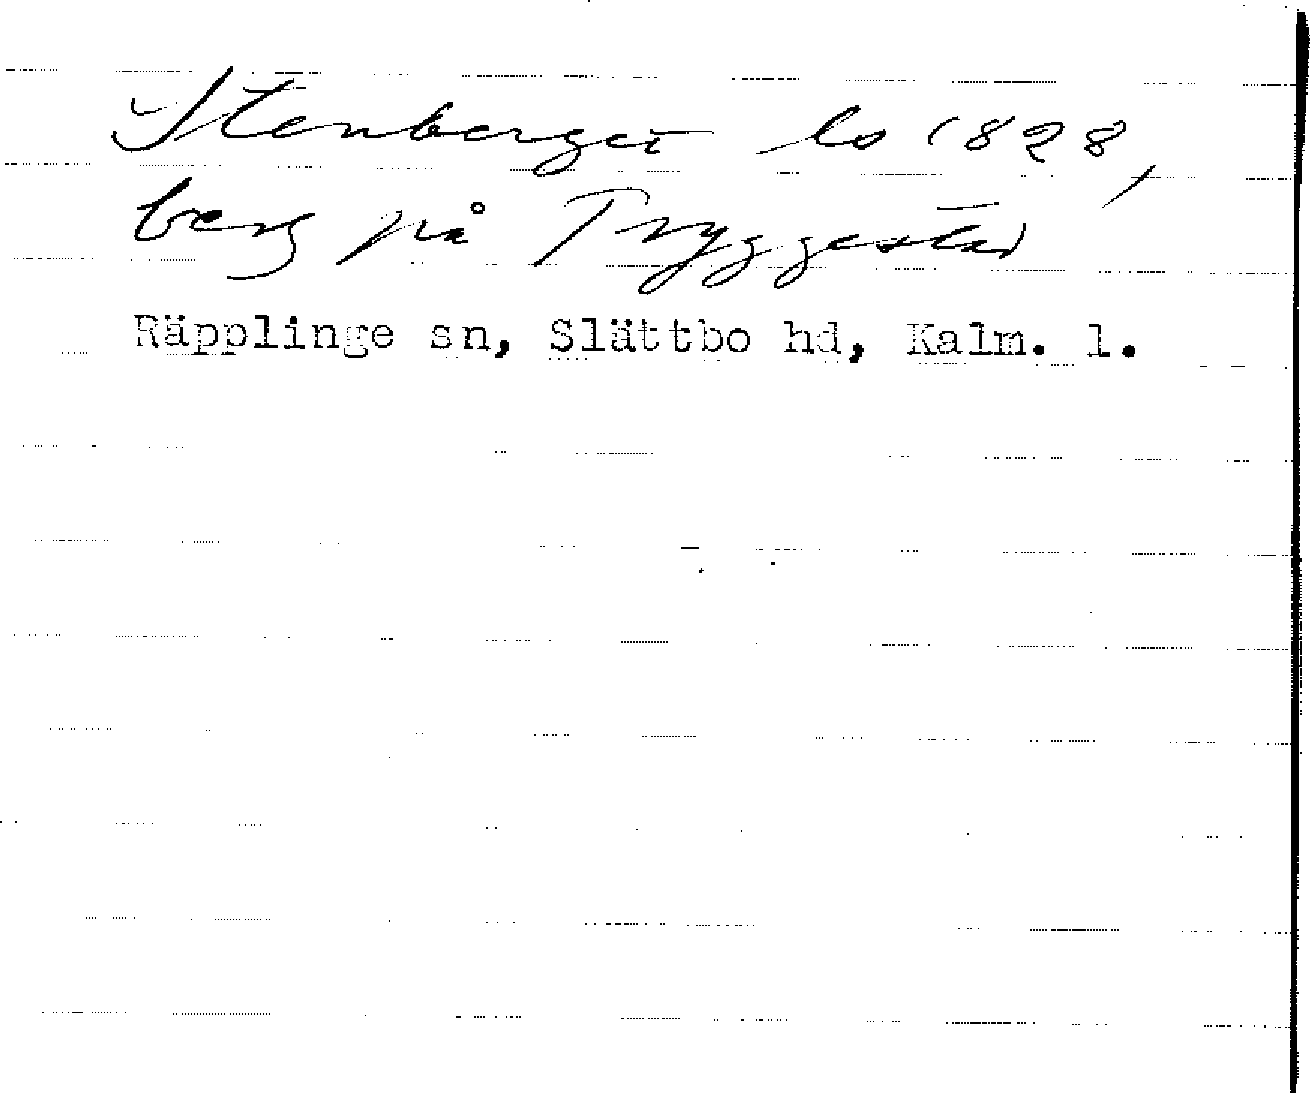 Stenberget lo 1828,
berg på Tryggestad
Räpplinge sn, Slättbo hd, Kalm. l.